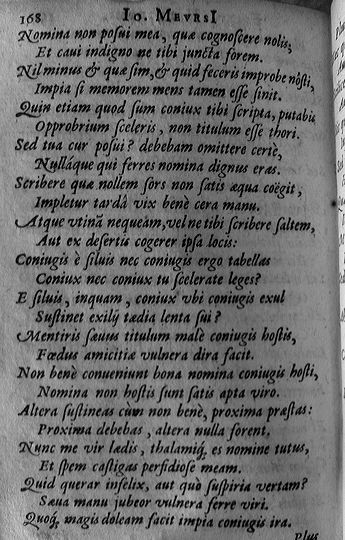 168 IO. MEVRSI
Nomina non posui mea, quæ cognoscere nolis,
Et caui indigno ne tibi juncta forem.
Nil minus & quæ sim, & quid feceris improbe nôsti,
Impia si memorem mens tamen esse sinit.
Quin etiam quod sum coniux tibi scripta, putabis
Opprobrium sceleris, non titulum esse thori.
Sed tua cur posui? debebam omittere certè,
Nullàque qui ferres nomina dignus eras.
Scribere quæ nollem sors non satis æqua coëgit,
Impletur tardâ vix benè cera manu.
Atque vtinã nequeam, vel ne tibi scribere saltem,
Aut ex desertis cogerer ipsa locis:
Coniugis è siluis nec coniugis ergo tabellas
Coniux nec coniux tu scelerate leges?
E siluis, inquam, coniux vbi coniugis exul
Sustinet exilij tædia lenta sui?
Mentiris sæuus titulum malè coniugis hostis,
Fœdus amicitiæ vulnera dira facit.
Non benè conueniunt bona nomina coniugis hosti,
Nomina non hostis sunt satis apta viro.
Altera sustineas cùm non benè, proxima præstas:
Proxima debebas, altera nulla forent.
Nunc me vir lædis, thalamiq́; es nomine tutus,
Et spem castigas perfidiose meam.
Quid querar infelix, aut quò suspiria vertam?
Sæua manu jubeor vulnera ferre viri.
Quoq́; magis doleam facit impia coniugis ira.
Plus